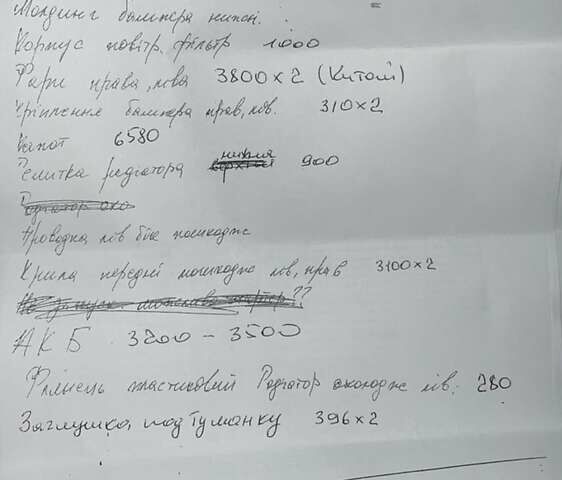 Молдинг бампера нижн.
Корпус повітр. фільтр 1000
Фари права, ліва 3800×2 (Китай)
Кріплення бампера прав, лів. 310×2
Капот 6580
Решітка радіатора нижня 900
Проводка лів бік пошкодж
Крила передні пошкодж лів, прав 3100×2
??
АКБ 3200 – 3500
Фланець пластиковий Радіатор охолодж лів. 280
Заглушка под туманку 396×2